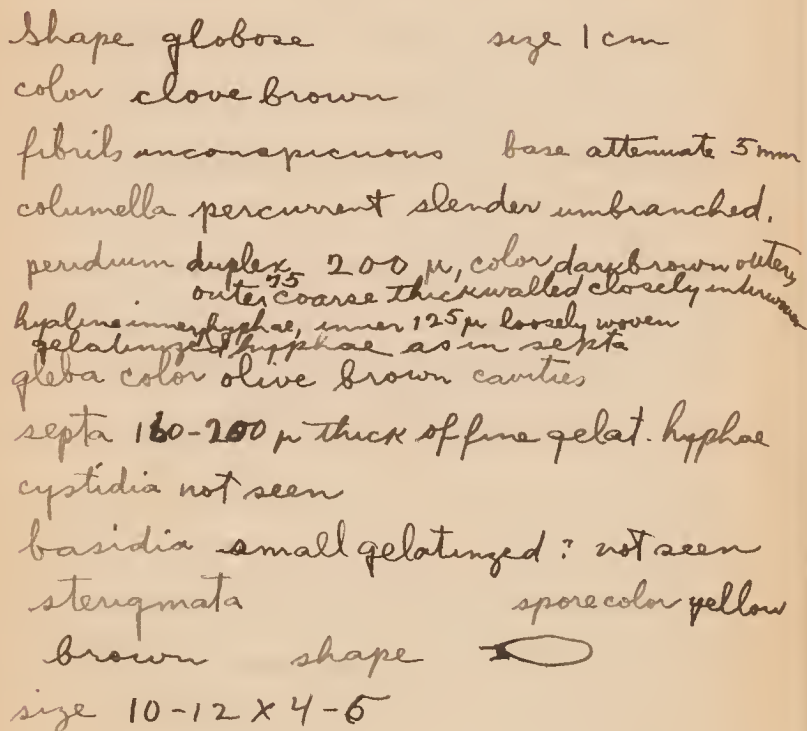 Shape globose size 1 cm
color clove brown
fibrils inconspicuous base attenuate 5 mm
columella percurrent slender unbranched.
peridium duplex 200 µ, color dark brown outer,
outer 75 coarse thickwalled closely interwoven
hyaline inner hyphae, inner 125 µ loosely woven
gelatinized hyphae as in septa
gleba color olive brown cavities
septa 160-200 µ thick of fine gelat. hyphae
cystidia not seen
basidia small gelatinzed? not seen
sterigmata spore color yellow
brown shape
size 10-12 x 4-6